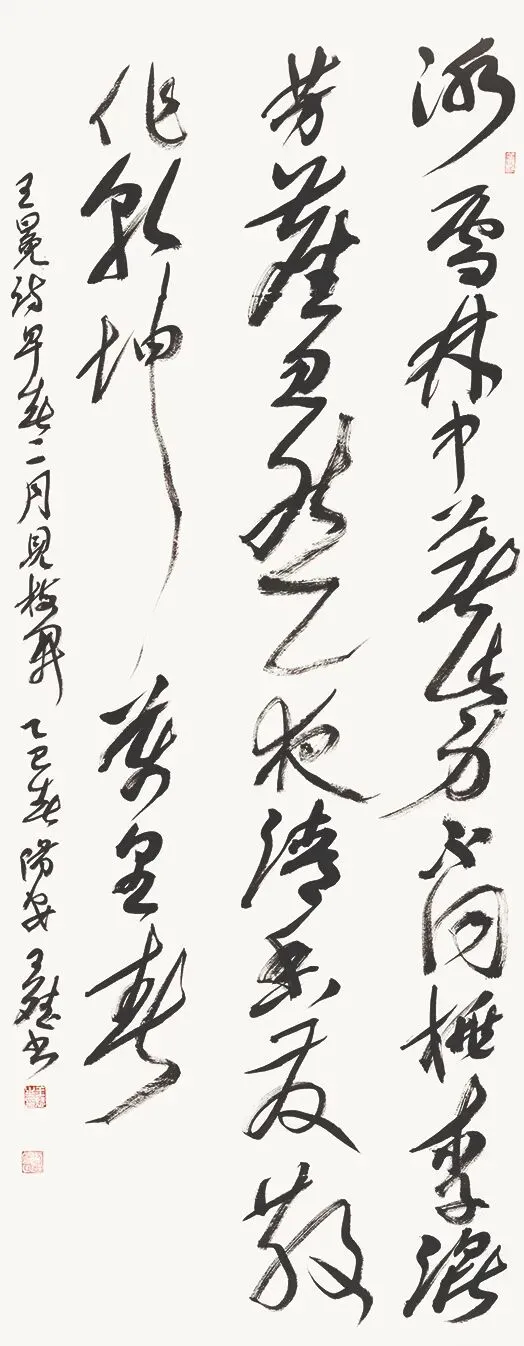 冰雪林中著此身不同桃李混
芳塵忽然一夜清香發散
作乾坤萬里春
王冕詩早春二月見梅開 乙巳春陽安王書